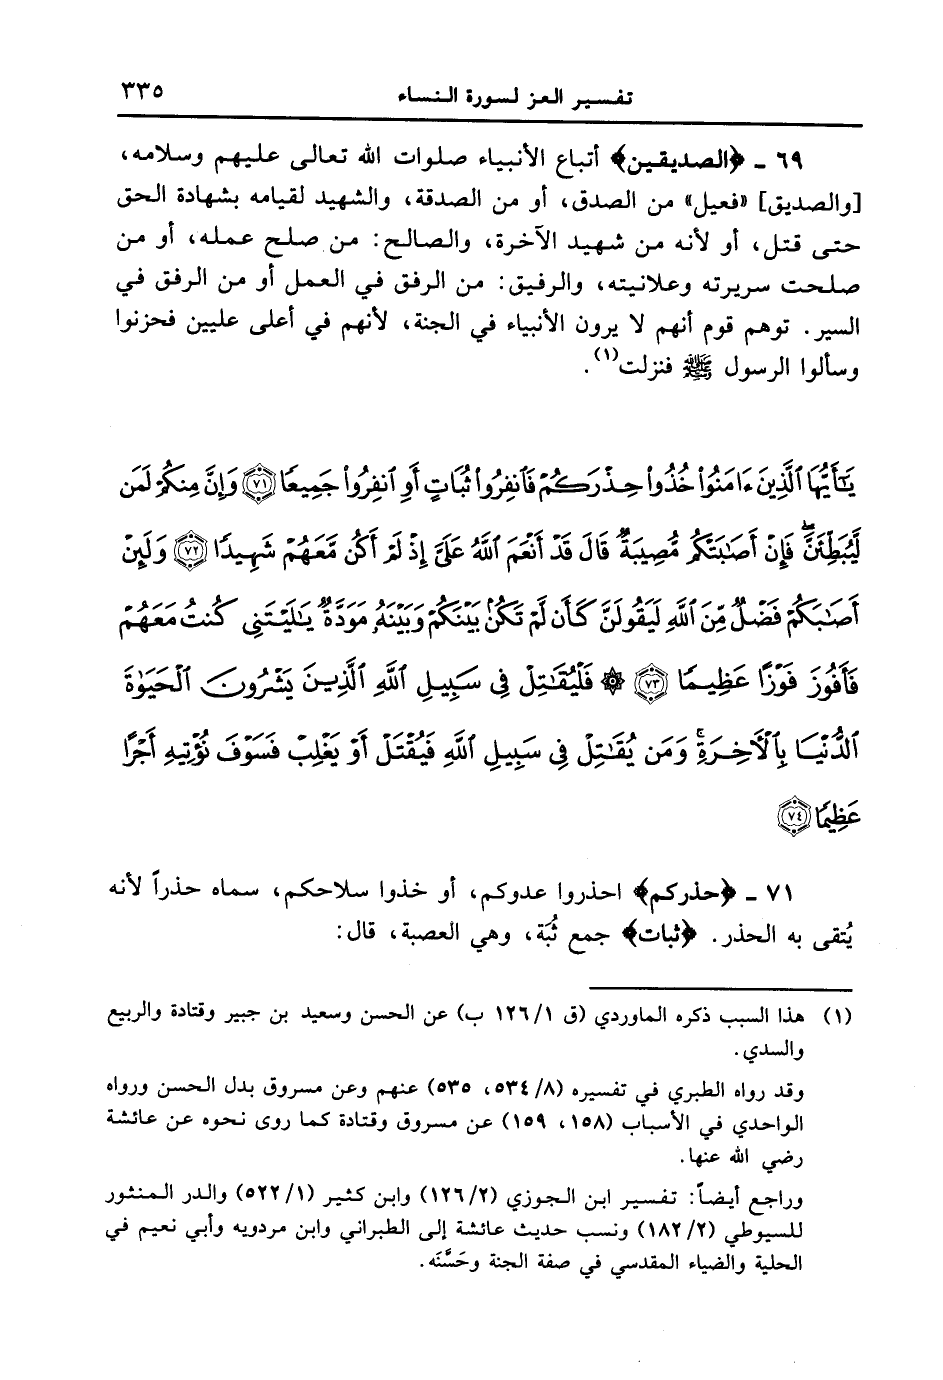 تفسير العز لسورة النساء ٣٣٥
٦٩ ـ ﴿الصديقين﴾ أتباع الأنبياء صلوات الله تعالى عليهم وسلامه،
[والصديق] «فعيل» من الصدق، أو من الصدقة، والشهيد لقيامه بشهادة الحق
حتى قتل، أو لأنه من شهيد الآخرة، والصالح: من صلح عمله، أو من
صلحت سريرته وعلانيته، والرفيق: من الرفق في العمل أو من الرفق في
السير. توهم قوم أنهم لا يرون الأنبياء في الجنة، لأنهم في أعلى عليين فحزنوا
وسألوا الرسول ﷺ فنزلت(١).
يَٰٓأَيُّهَا ٱلَّذِينَ ءَامَنُوا۟ خُذُوا۟ حِذْرَكُمْ فَٱنفِرُوا۟ ثُبَاتٍ أَوِ ٱنفِرُوا۟ جَمِيعًا ٧١ وَإِنَّ مِنكُمْ لَمَن
لَّيُبَطِّئَنَّ ۖ فَإِنْ أَصَٰبَتْكُم مُّصِيبَةٌ قَالَ قَدْ أَنْعَمَ ٱللَّهُ عَلَىَّ إِذْ لَمْ أَكُن مَّعَهُمْ شَهِيدًا ٧٢ وَلَئِنْ
أَصَٰبَكُمْ فَضْلٌ مِّنَ ٱللَّهِ لَيَقُولَنَّ كَأَن لَّمْ تَكُنۢ بَيْنَكُمْ وَبَيْنَهُۥ مَوَدَّةٌ يَٰلَيْتَنِى كُنتُ مَعَهُمْ
فَأَفُوزَ فَوْزًا عَظِيمًا ٧٣ ۞ فَلْيُقَٰتِلْ فِى سَبِيلِ ٱللَّهِ ٱلَّذِينَ يَشْرُونَ ٱلْحَيَوٰةَ
ٱلدُّنْيَا بِٱلْءَاخِرَةِ ۚ وَمَن يُقَٰتِلْ فِى سَبِيلِ ٱللَّهِ فَيُقْتَلْ أَوْ يَغْلِبْ فَسَوْفَ نُؤْتِيهِ أَجْرًا
عَظِيمًا ٧٤
٧١ ـ ﴿حذركم﴾ احذروا عدوكم، أو خذوا سلاحكم، سماه حذراً لأنه
يُتقى به الحذر. ﴿ثبات﴾ جمع ثُبَة، وهي العصبة، قال:
(١) هذا السبب ذكره الماوردي (ق ١/ ١٢٦ ب) عن الحسن وسعيد بن جبير وقتادة والربيع
والسدي.
وقد رواه الطبري في تفسيره (٨/ ٥٣٤، ٥٣٥) عنهم وعن مسروق بدل الحسن ورواه
الواحدي في الأسباب (١٥٨، ١٥٩) عن مسروق وقتادة كما روى نحوه عن عائشة
رضي الله عنها.
وراجع أيضاً: تفسير ابن الجوزي (٢/ ١٢٦) وابن كثير (١/ ٥٢٢) والدر المنثور
للسيوطي (٢/ ١٨٢) ونسب حديث عائشة إلى الطبراني وابن مردويه وأبي نعيم في
الحلية والضياء المقدسي في صفة الجنة وحَسَّنَه.